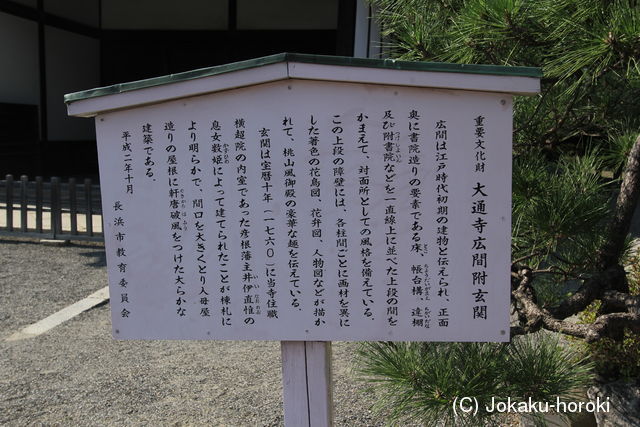 重要文化財　大通寺広間附玄関
広間は江戸時代初期の建物と伝えられ、正面
奥に書院造りの要素である床、帳台構、違棚
及び附書院などを一直線上に並べた上段の間を
かまえて、対面所としての風格を備えている。
この上段の障壁には、各柱間ごとに画材を異に
した着色の花鳥図、花弁図、人物図などが描か
れて、桃山風御殿の豪華な趣を伝えている。
玄関は宝暦十年（一七六〇）に当寺住職
横超院の内室であった彦根藩主井伊直惟の
息女数姫によって建てられたことが棟札に
より明らかで、間口を大きくとり入母屋
造りの屋根に軒唐破風をつけた大らかな
建築である。
平成二年十月
長浜市教育委員会
(C) Jokaku-horoki